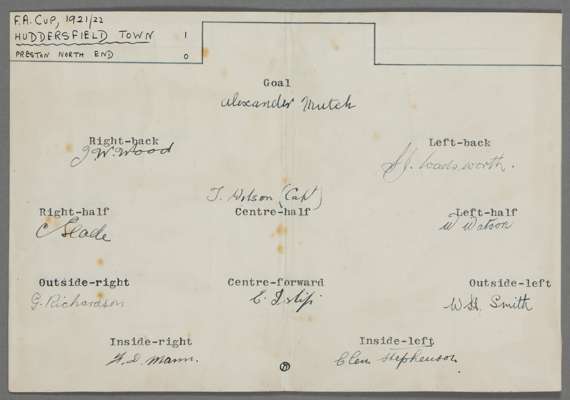 F.A. CUP, 1921/22
HUDDERSFIELD TOWN 1
PRESTON NORTH END 0
Goal
Alexander Mutch
Right-back
J W. Wood
Left-back
S J. Wadsworth.
T. Wilson (Capt)
Right-half
Centre-half
Left-half
C Slade
W Watson
Outside-right
Centre-forward
Outside-left
G. Richardson
C. Islip
W.H. Smith
Inside-right
Inside-left
F. D. Mann.
Clem Stephenson.